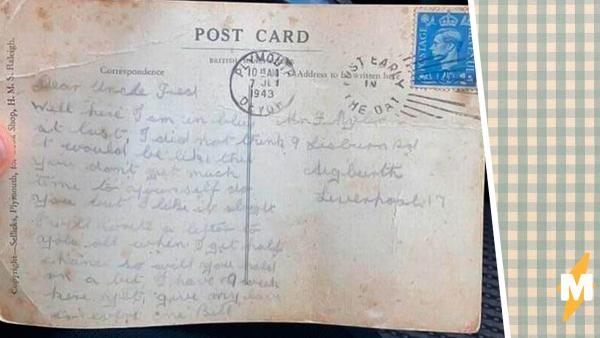 POST CARD
Correspondence
Address to be written here
PLYMOUTH
10 AM
7 JLY
1943
DEVON
POST EARLY
IN
THE DAY
POSTAGE
Copyright—Sellicks, Plymouth, Shop, H. M. S. Raleigh.
Dear Uncle Fred
Well here I am in blue
at last, I did not think
I would be like this
you don't get much
time to yourself do
you but I like it alright
I will write a letter to
you all when I get half
a chance so will you hold
on a bit I have 9 week
here yet, give my love
Bill
Mr F.
9 Lisburn Rd
Aigburth
Liverpool 17
M